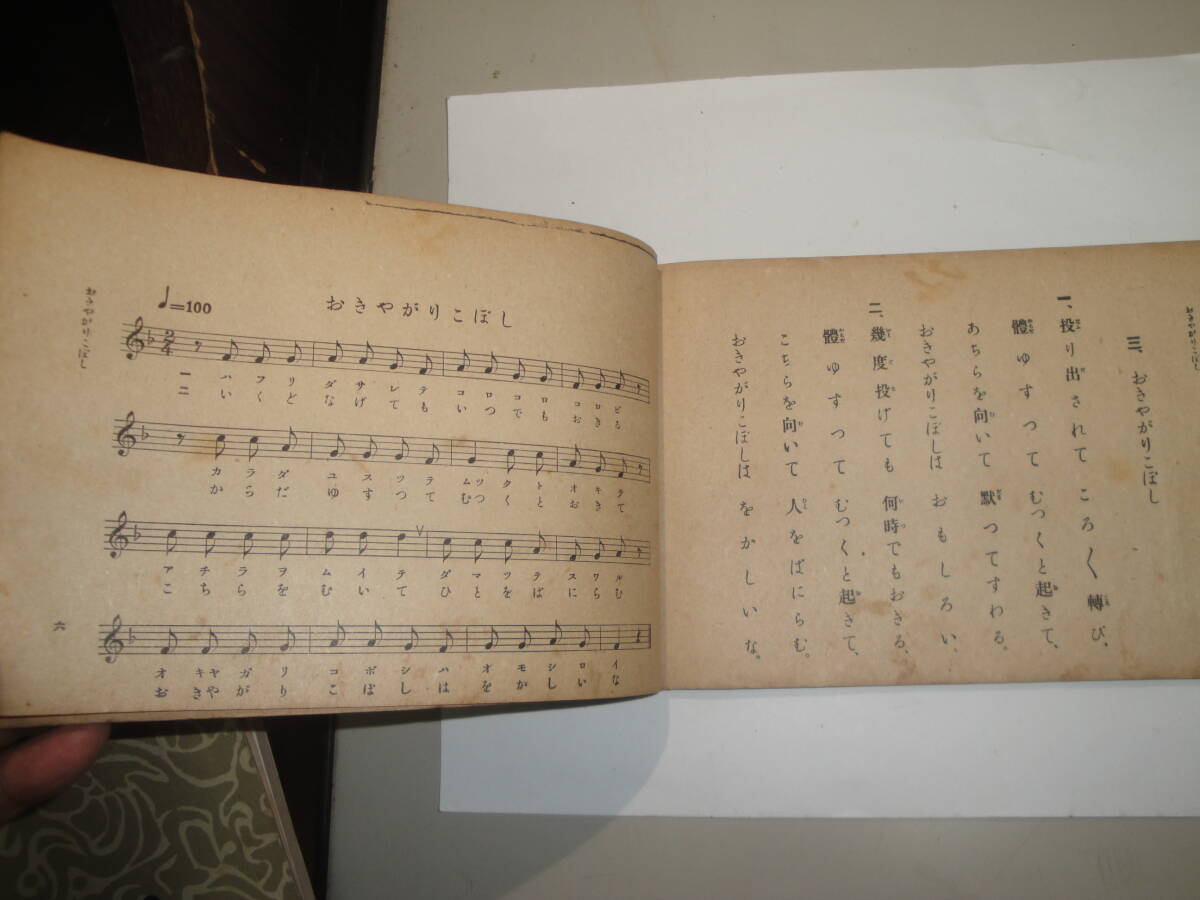 おきやがりこぼし
三、おきやがりこぼし
一、投り出されて ころ〱轉び、
體ゆすつて むつくと起きて、
あちらを向いて 默つてすわる。
おきやがりこぼしは おもしろい、
二、幾度投げても 何時でもおきる、
體ゆすつて むつくと起きて、
こちらを向いて 人をばにらむ。
おきやがりこぼしは をかしいな。
おきやがりこぼし
♩=100
一 ハフリ ダサレテ コロコロ コロビ
二 いくど なげても いつでも おきる
カラダ ユスツテ ムツクト オキテ
からだ ゆすつて むつくと おきて
アチラヲ ムイテ ダマツテ スワル
こちらを むいて ひとをば にらむ
オキヤガリ コボシハ オモシロイ
おきやがり こぼしは をかしいな
おきやがりこぼし
六